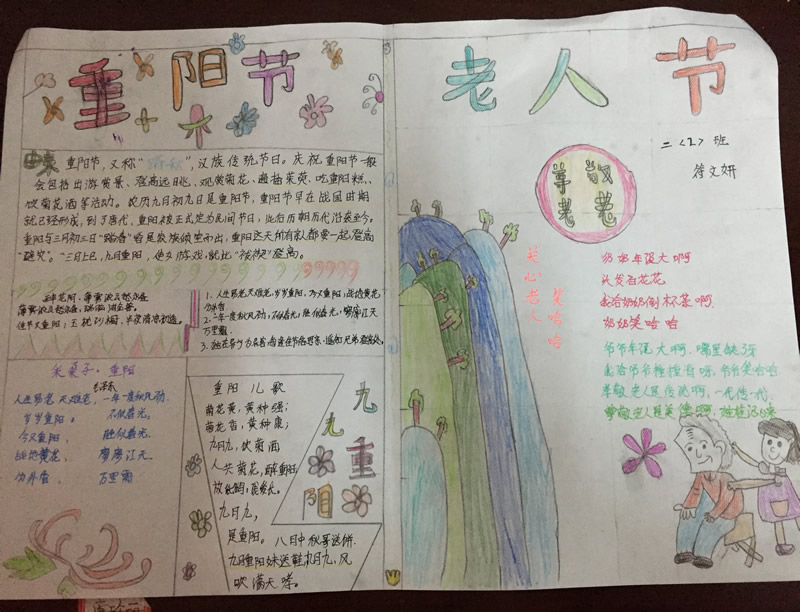 重阳节
由来 重阳节，又称“踏秋”，汉族传统节日。庆祝重阳节一般
会包括出游赏景、登高远眺、观赏菊花、遍插茱萸、吃重阳糕、
饮菊花酒等活动。农历九月初九日是重阳节，重阳节早在战国时期
就已经形成，到了唐代，重阳被正式定为民间节日，此后历朝历代沿袭至今。
重阳与三月初三日“踏春”皆是家族倾室而出，重阳这天所有亲人都要一起登高
“避灾”。
佳节又重阳，玉枕纱橱，半夜凉初透。
1、人生易老天难老，岁岁重阳，今又重阳，战地黄花
分外香
2、一年一度秋风劲，不似春光，胜似春光，寥廓江天
万里霜
3、独在异乡为异客，每逢佳节倍思亲，遥知兄弟登高处
采桑子·重阳
毛泽东
人生易老天难老，一年一度秋风劲，
岁岁重阳。 不似春光，
今又重阳， 胜似春光，
战地黄花， 寥廓江天，
分外香， 万里霜
重阳儿歌
菊花黄，黄种强；
菊花香，黄种康；
九月九，饮菊酒
人共菊花，醉重阳
九月九，
是重阳。
八月中秋哥送饼
九月重阳妹送鞋九月九，风
吹满天嗥。
九
九
重
阳
老人节
二〈2〉班
符文妍
尊老
敬老
关心老人
笑哈哈
奶奶年纪大啊
头发白花花
我给奶奶倒杯茶啊
奶奶笑哈哈
爷爷年纪大啊，嘴里缺牙
我给爷爷捶捶背呀，爷爷笑哈哈
孝敬老人是传统啊，一代传一代
尊敬老人是美德啊，娃娃记心来